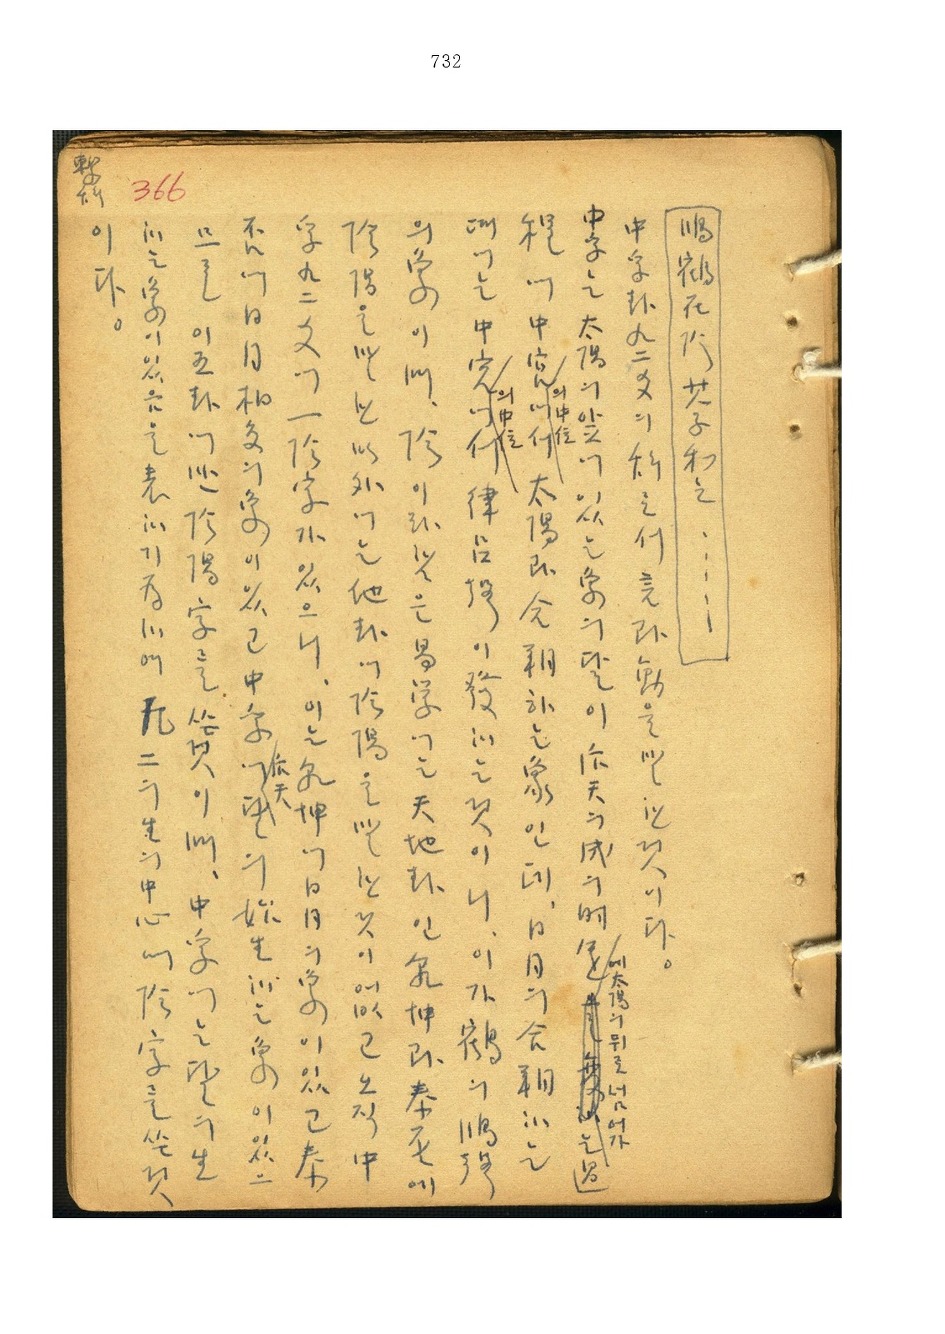 732
繫辭
366
鳴鶴在陰其子和는 ......
中孚卦九二爻의 辭로서 言과 動을 말한 것이다。
中孚는 太陽의 앞에 있는 象의 달이 后天의 成의 時運에 太陽의 뒤로 넘어가는 過
程에 中宮의 中位에서 太陽과 合朔하는 象인데, 日月의 合朔하는
때에는 中宮의 中位에서 律呂聲이 發하는 것이니, 이가 鶴의 鳴聲
의 象이며, 陰이라 함은 易學에는 天地卦인 乾坤과 泰否에
陰陽을 말한 以外에는 他卦에 陰陽을 말한 것이 없고 오직 中
孚九二爻에 一陰字가 있으니, 이는 乾坤에 日月의 象이 있고 泰
否에 日月相交의 象이 있고 中孚에 后天달의 始生하는 象이 있으
므로 이 五卦에만 陰陽字를 쓴 것이며, 中孚에는 달의 生
하는 象이 있음을 表하기 爲하여 九二의 生의 中心에 陰字를 쓴 것
이다。